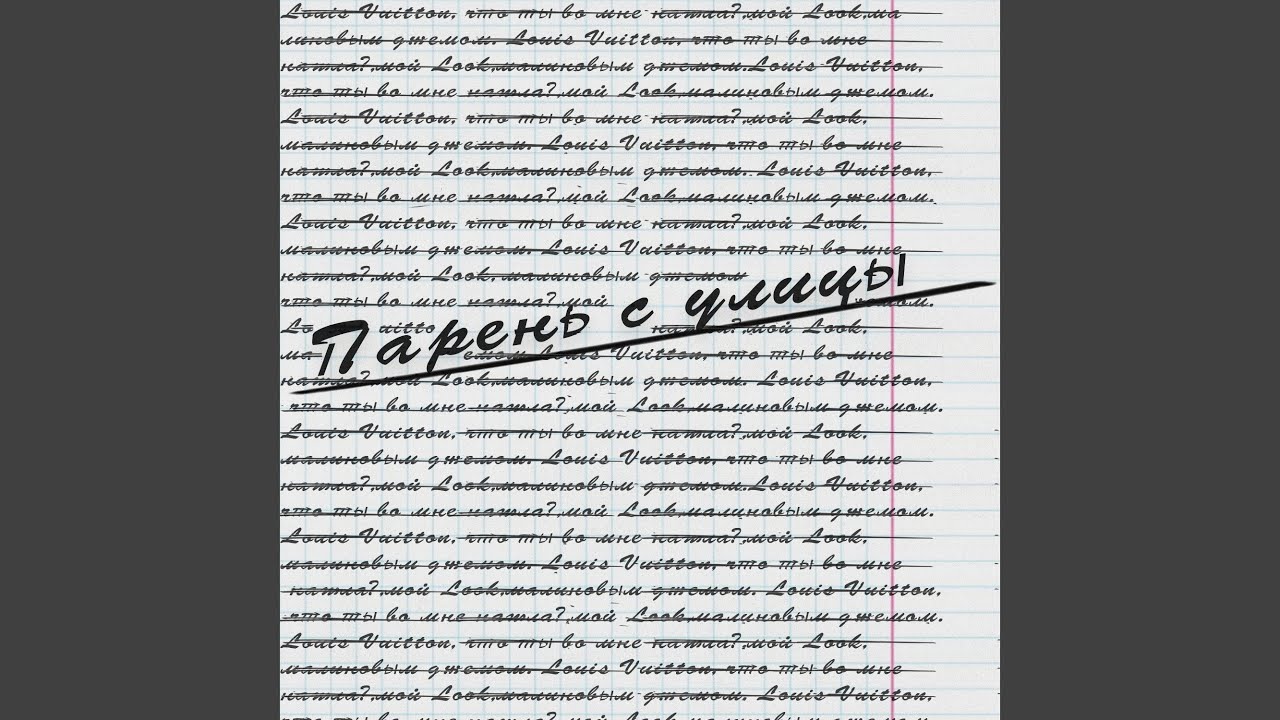 Louis Vuitton, что ты во мне нашла?,мой Look,ма
линовым джемом. Louis Vuitton, что ты во мне
нашла?,мой Look,малиновым джемом.Louis Vuitton,
что ты во мне нашла?,мой Look,малиновым джемом.
Louis Vuitton, что ты во мне нашла?,мой Look,
малиновым джемом. Louis Vuitton, что ты во мне
нашла?,мой Look,малиновым джемом. Louis Vuitton,
что ты во мне нашла?,мой Look,малиновым джемом.
Louis Vuitton, что ты во мне нашла?,мой Look,
малиновым джемом. Louis Vuitton, что ты во мне
нашла?,мой Look, малиновым джемом
что ты во мне нашла?,мой
Парень с улицы
мой Look,
Louis Vuitton, что ты во мне
нашла?,мой Look,малиновым джемом. Louis Vuitton,
что ты во мне нашла?,мой Look,малиновым джемом.
Louis Vuitton, что ты во мне нашла?,мой Look,
малиновым джемом. Louis Vuitton, что ты во мне
нашла?,мой Look,малиновым джемом.Louis Vuitton,
что ты во мне нашла?,мой Look,малиновым джемом.
Louis Vuitton, что ты во мне нашла?,мой Look,
малиновым джемом. Louis Vuitton, что ты во мне
нашла?,мой Look,малиновым джемом. Louis Vuitton,
что ты во мне нашла?,мой Look,малиновым джемом.
Louis Vuitton, что ты во мне нашла?,мой Look,
малиновым джемом. Louis Vuitton, что ты во мне
нашла?,мой Look,малиновым джемом. Louis Vuitton,